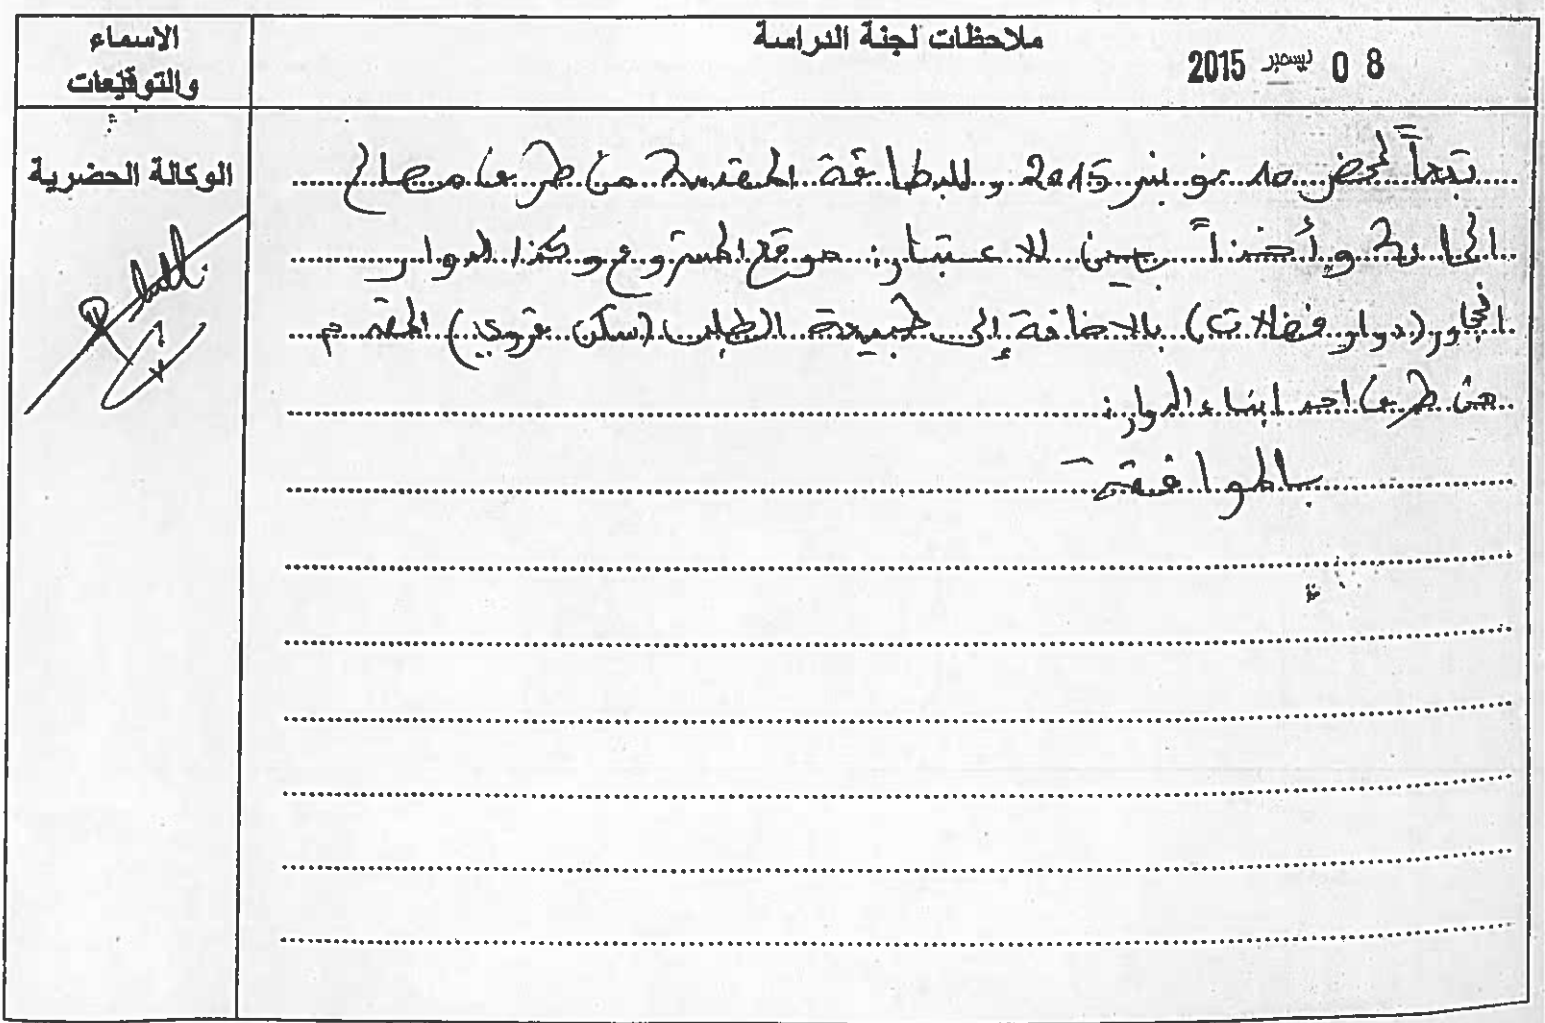 ملاحظات لجنة الدراسة
0 8 ديسمبر 2015
الاسماء
والتوقيعات
الوكالة الحضرية
تبعاً لمحضر 10 نونبر 2015 وللبطاقة المقدمة من طرف مصالح
وأخذاً بعين الاعتبار: موقع المشروع وكذا الدوار
المجاور (دوار فضالات) بالاضافة إلى طبيعة الطلب (سكن قروي) المقدم
من طرف احد ابناء الدوار:
بالموافقة